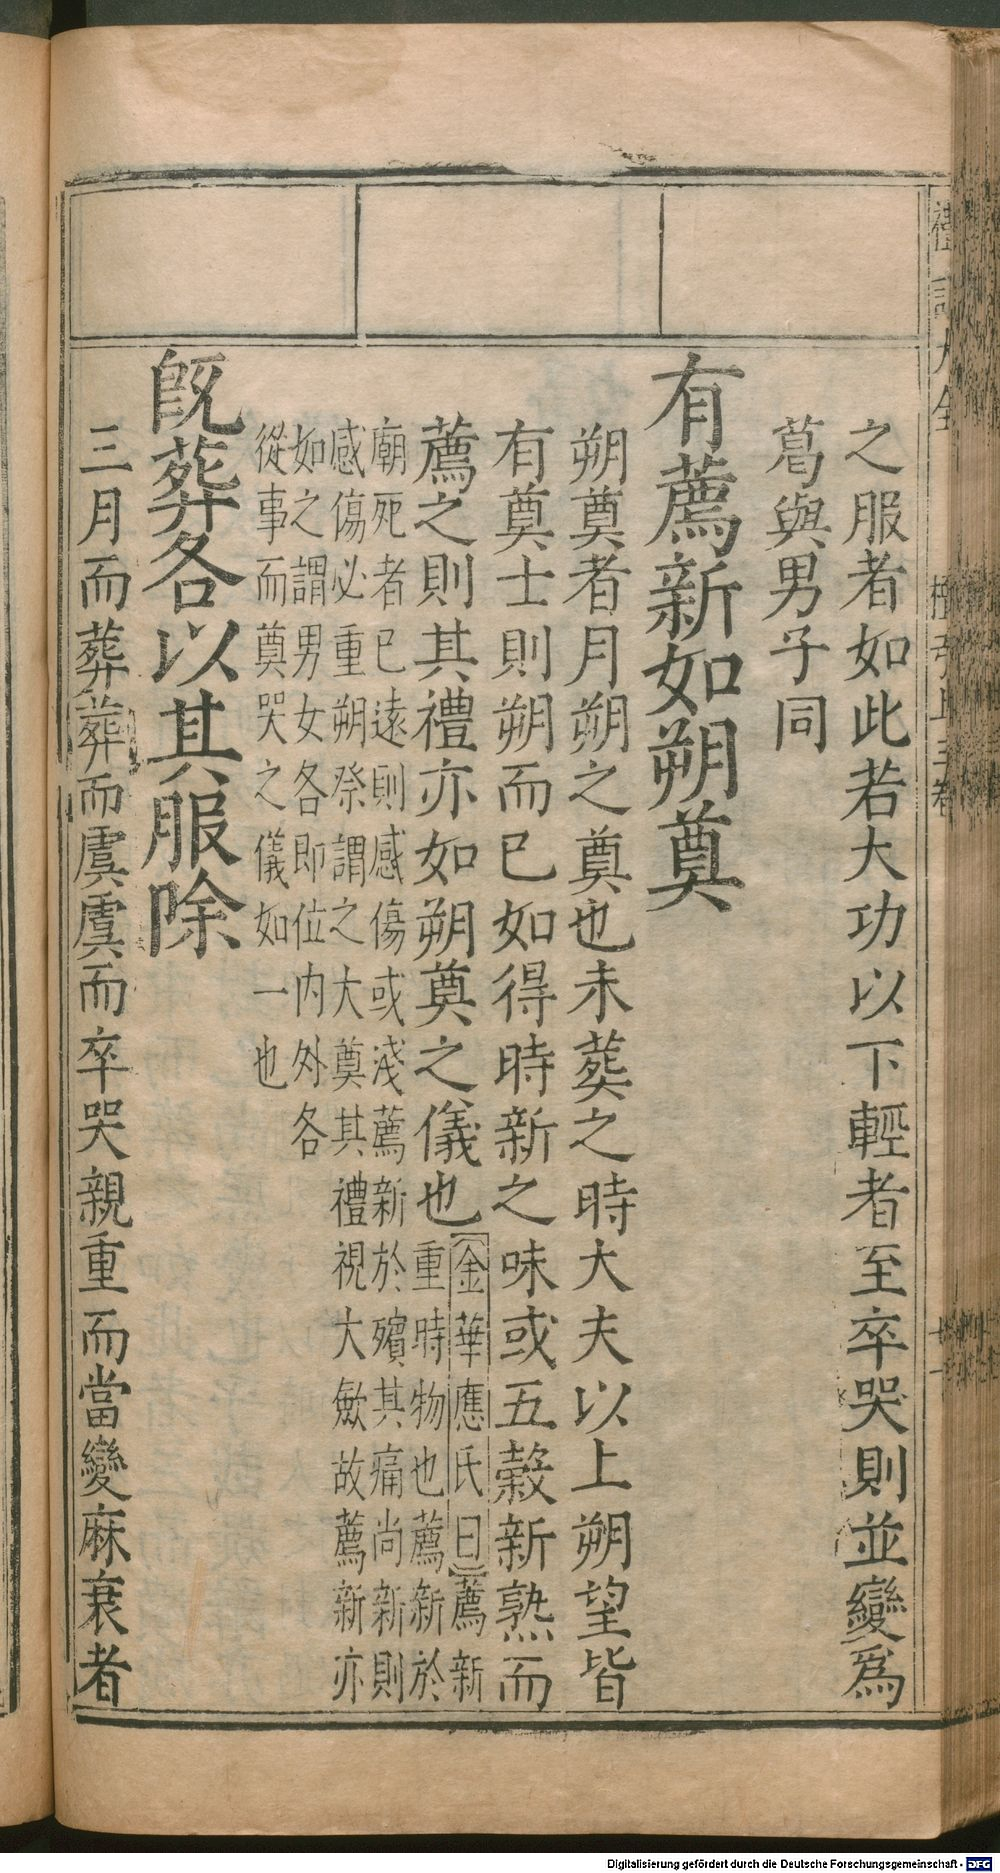 禮記大全 檀弓上三卷
之服者如此若大功以下輕者至卒哭則並變爲
葛與男子同
有薦新如朔奠
朔奠者月朔之奠也未葬之時大夫以上朔望皆
有奠士則朔而已如得時新之味或五穀新熟而
薦之則其禮亦如朔奠之儀也
金華應氏曰薦新
重時物也薦新於
廟死者已遠則感傷或淺薦新於殯其痛尚新則
感傷必重朔祭謂之大奠其禮視大斂故薦新亦
如之謂男女各即位內外各
從事而奠哭之儀如一也
既葬各以其服除
三月而葬葬而虞虞而卒哭親重而當變麻衰者
Digitalisierung gefördert durch die Deutsche Forschungsgemeinschaft - DFG